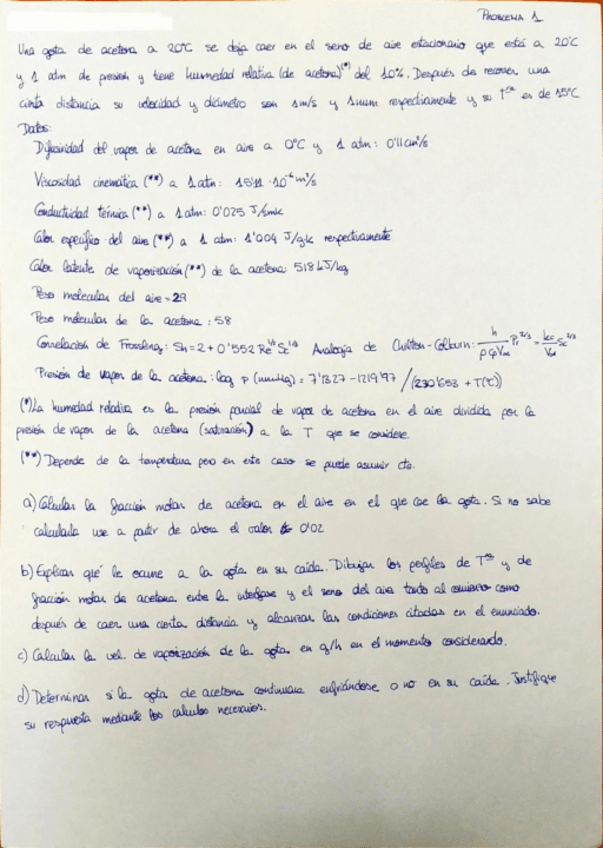 PROBLEMA 1
Una gota de acetona a 20ºC se deja caer en el seno de aire estacionario que está a 20ºC
y 1 atm de presión y tiene humedad relativa (de acetona)(*) del 10%. Después de recorrer una
cierta distancia su velocidad y diámetro son 1m/s y 1mm respectivamente y su Tª es de 15ºC
Datos:
Difusividad del vapor de acetona en aire a 0ºC y 1 atm: 0'11 cm²/s
Viscosidad cinemática (**) a 1 atm: 15'11·10⁻⁶ m²/s
Conductividad térmica (**) a 1 atm: 0'025 J/smk
Calor específico del aire (**) a 1 atm: 1'004 J/g·k respectivamente
Calor latente de vaporización (**) de la acetona: 518 kJ/kg
Peso molecular del aire = 29
Peso molecular de la acetona: 58
Correlación de Frossling: Sh = 2 + 0'552 Re^1/2 Sc^1/3 Analogía de Chilton-Colburn: h/(ρ Cp V∞) Pr^2/3 = kc/V∞ Sc^2/3
Presión de vapor de la acetona: log p (mmHg) = 7'1327 - 1219'97 / (230'653 + T(ºC))
(*) La humedad relativa es la presión parcial de vapor de acetona en el aire dividida por la
presión de vapor de la acetona (saturación) a la T que se considere.
(**) Depende de la temperatura pero en este caso se puede asumir cte.
a) Calcular la fracción molar de acetona en el aire en el que cae la gota. Si no sabe
calcularla use a partir de ahora el valor de 0'02
b) Explicar qué le ocurre a la gota en su caída. Dibujar los perfiles de Tª y de
fracción molar de acetona entre la interfase y el seno del aire tanto al comienzo como
después de caer una cierta distancia y alcanzar las condiciones citadas en el enunciado.
c) Calcular la vel. de vaporización de la gota en g/h en el momento considerando.
d) Determinar si la gota de acetona continuara enfriándose o no en su caída. Justifique
su respuesta mediante los calculos necesarios.